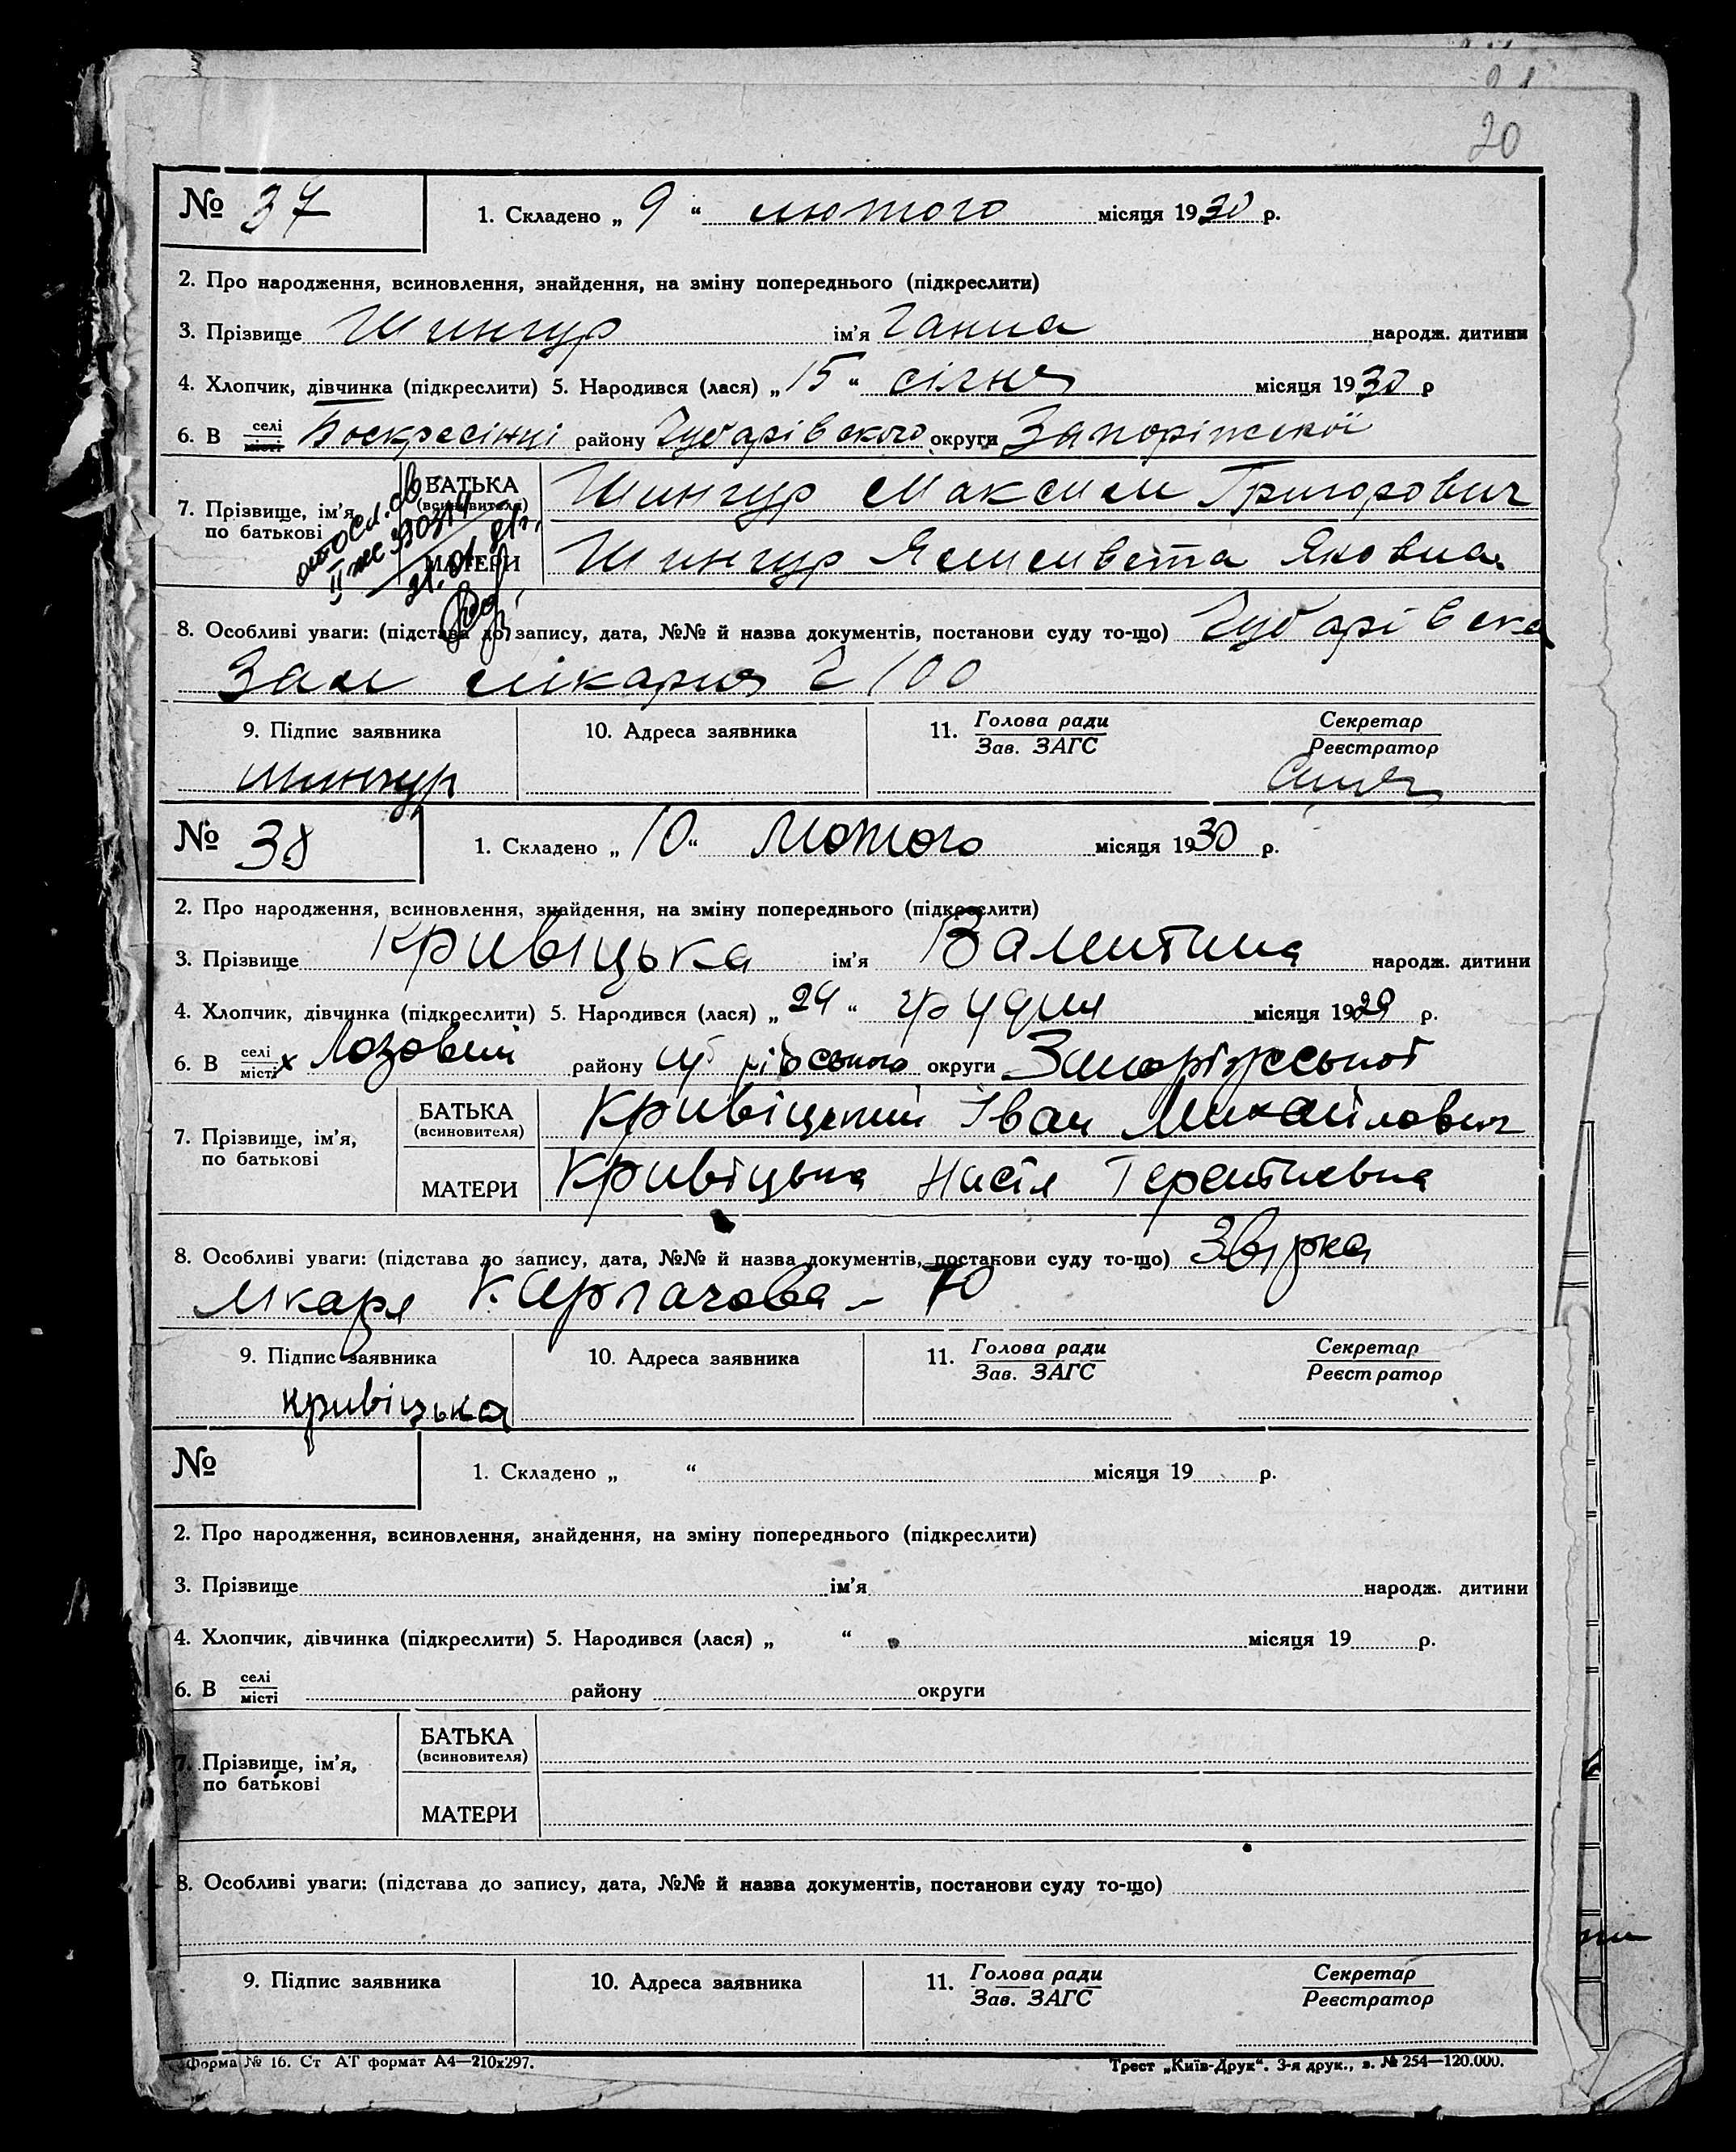 20
№ 37
1. Складено „ 9 “ лютого місяця 1930 р.
2. Про народження, всиновлення, знайдення, на зміну попереднього (підкреслити)
3. Прізвище Шингур ім’я Ганна народж. дитини
4. Хлопчик, дівчинка (підкреслити) 5. Народився (лася) „ 15 “ січня місяця 1930 р
6. В селі місті Воскресінці району Чубарівского округи Запоріжскої
7. Прізвище, ім’я, по батькові
БАТЬКА (всиновителя) Шингур Максим Григорович
МАТЕРИ Шингур Яковна
8. Особливі уваги: (підстава до запису, дата, №№ й назва документів, постанови суду то-що) Чубарівска
Зам лікарня 2 100
9. Підпис заявника 10. Адреса заявника 11. Голова ради Зав. ЗАГС Секретар Реєстратор
Шингур
№ 38
1. Складено „ 10 “ Лютого місяця 1930 р.
2. Про народження, всиновлення, знайдення, на зміну попереднього (підкреслити)
3. Прізвище Кривіцька ім’я Валентина народж. дитини
4. Хлопчик, дівчинка (підкреслити) 5. Народився (лася) „ 24 “ грудня місяця 1929 р.
6. В селі місті х Лозовий району округи Запоріжської
7. Прізвище, ім’я, по батькові
БАТЬКА (всиновителя) Кривіцький Іван Михайлович
МАТЕРИ Кривіцька Терентиевна
8. Особливі уваги: (підстава до запису, дата, №№ й назва документів, постанови суду то-що)
лікаря Карпачова – 70
9. Підпис заявника 10. Адреса заявника 11. Голова ради Зав. ЗАГС Секретар Реєстратор
Кривіцька
№
1. Складено „ “ місяця 19 р.
2. Про народження, всиновлення, знайдення, на зміну попереднього (підкреслити)
3. Прізвище ім’я народж. дитини
4. Хлопчик, дівчинка (підкреслити) 5. Народився (лася) „ “ місяця 19 р.
6. В селі місті району округи
7. Прізвище, ім’я, по батькові
БАТЬКА (всиновителя)
МАТЕРИ
8. Особливі уваги: (підстава до запису, дата, №№ й назва документів, постанови суду то-що)
9. Підпис заявника 10. Адреса заявника 11. Голова ради Зав. ЗАГС Секретар Реєстратор
Форма № 16. Ст АТ формат А4—210х297.
Трест „Київ-Друк“. 3-я друк., з. № 254—120.000.